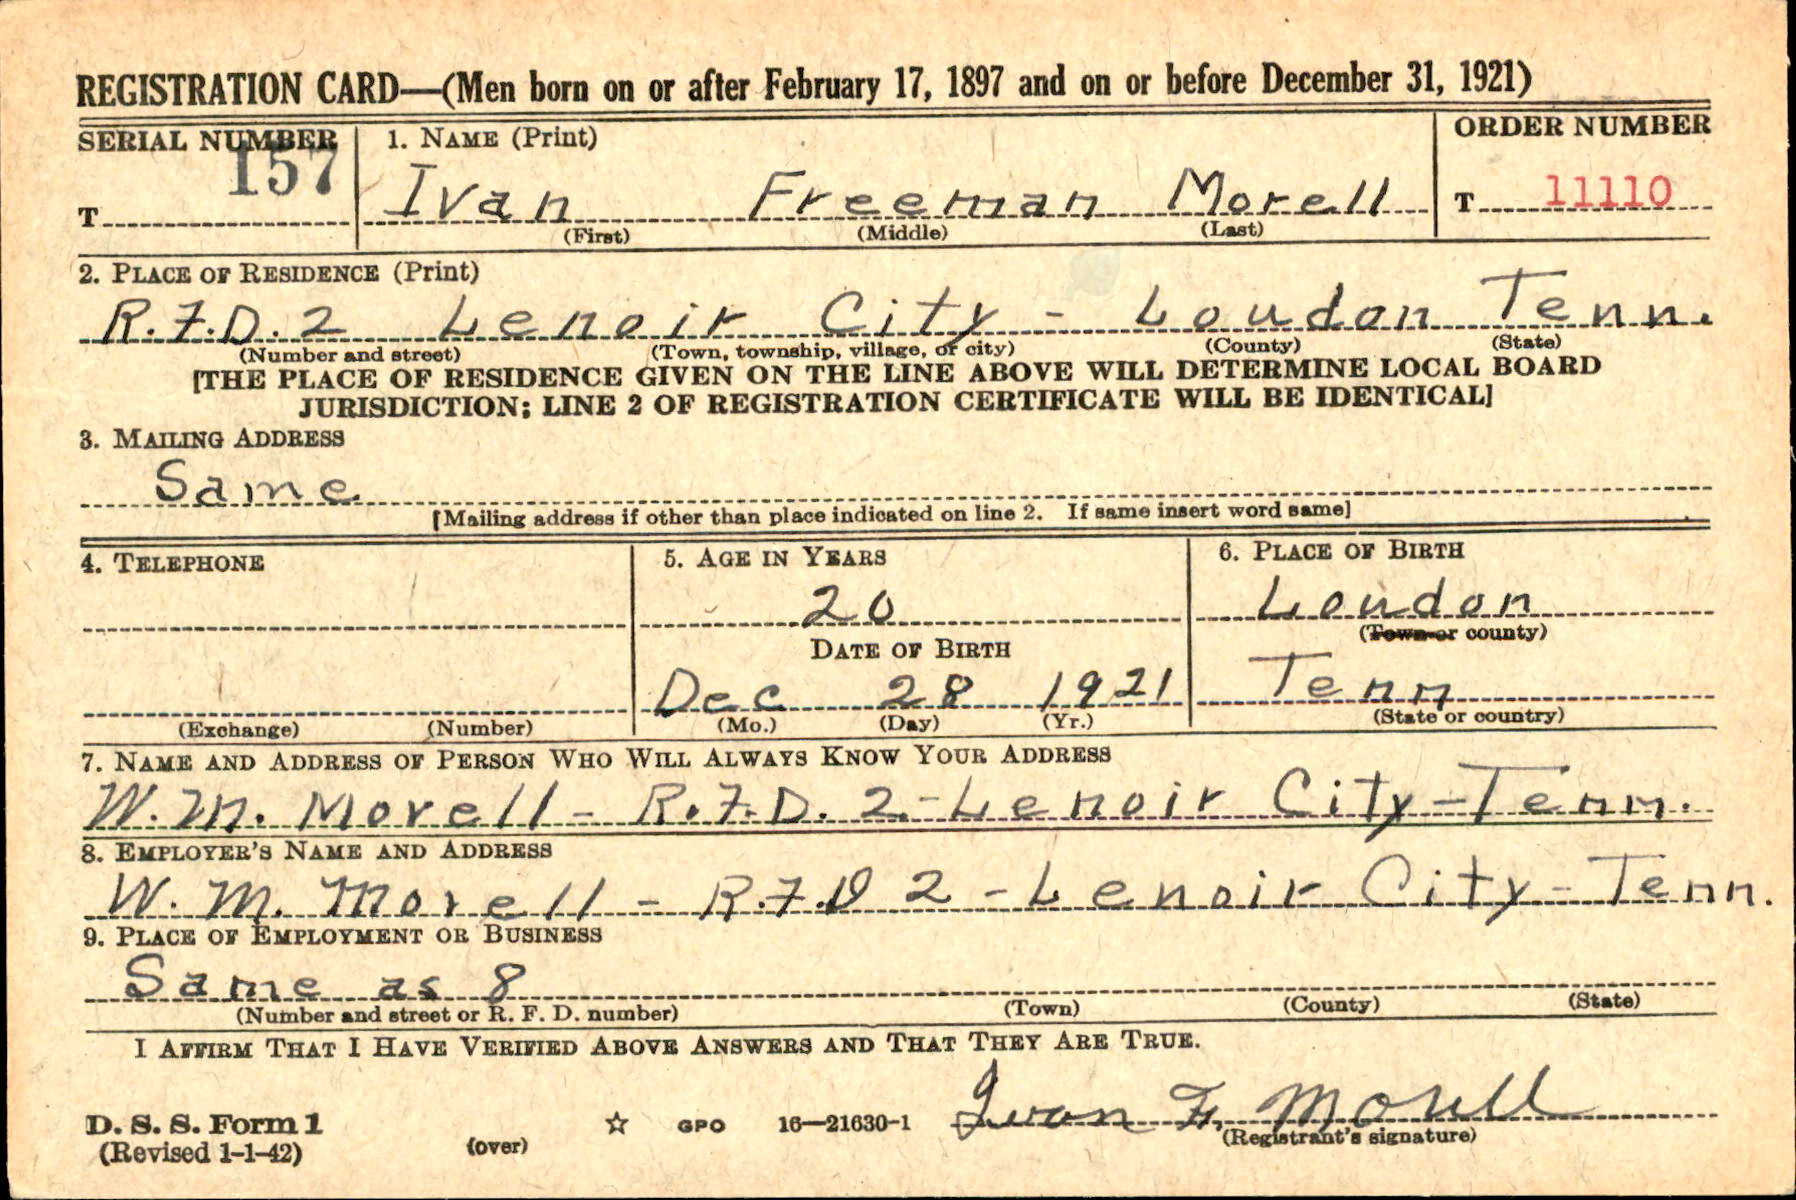 REGISTRATION CARD—(Men born on or after February 17, 1897 and on or before December 31, 1921)
SERIAL NUMBER 1. NAME (Print) ORDER NUMBER
T 157 Ivan Freeman Morell T 11110
(First) (Middle) (Last)
2. PLACE OF RESIDENCE (Print)
R.F.D. 2 Lenoir City - Loudon Tenn.
(Number and street) (Town, township, village, or city) (County) (State)
[THE PLACE OF RESIDENCE GIVEN ON THE LINE ABOVE WILL DETERMINE LOCAL BOARD
JURISDICTION; LINE 2 OF REGISTRATION CERTIFICATE WILL BE IDENTICAL]
3. MAILING ADDRESS
Same
[Mailing address if other than place indicated on line 2. If same insert word same]
4. TELEPHONE 5. AGE IN YEARS 6. PLACE OF BIRTH
20 Loudon
(Town or county)
DATE OF BIRTH
Dec 28 1921 Tenn
(Exchange) (Number) (Mo.) (Day) (Yr.) (State or country)
7. NAME AND ADDRESS OF PERSON WHO WILL ALWAYS KNOW YOUR ADDRESS
W. M. Morell - R.F.D. 2 - Lenoir City - Tenn.
8. EMPLOYER'S NAME AND ADDRESS
W. M. Morell - R.F.D 2 - Lenoir City - Tenn.
9. PLACE OF EMPLOYMENT OR BUSINESS
Same as 8
(Number and street or R. F. D. number) (Town) (County) (State)
I AFFIRM THAT I HAVE VERIFIED ABOVE ANSWERS AND THAT THEY ARE TRUE.
Ivan F. Morell
D. S. S. Form 1 ☆ GPO 16—21630-1 (Registrant's signature)
(Revised 1-1-42) (over)